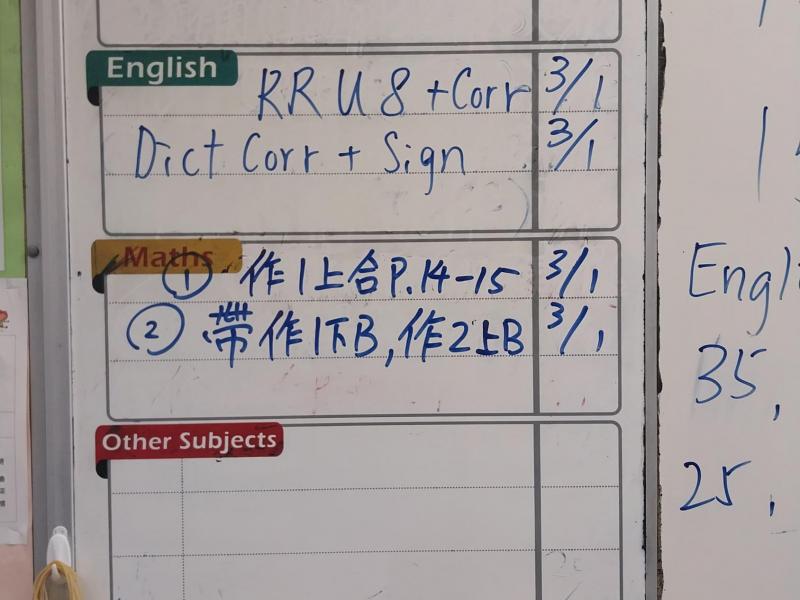 English
RR U 8 + Corr 3/1
Dict Corr + Sign 3/1
Maths
① 作1上合P.14-15 3/1
② 帶作1下B,作2上B 3/1
Other Subjects
Engli
35,
25,